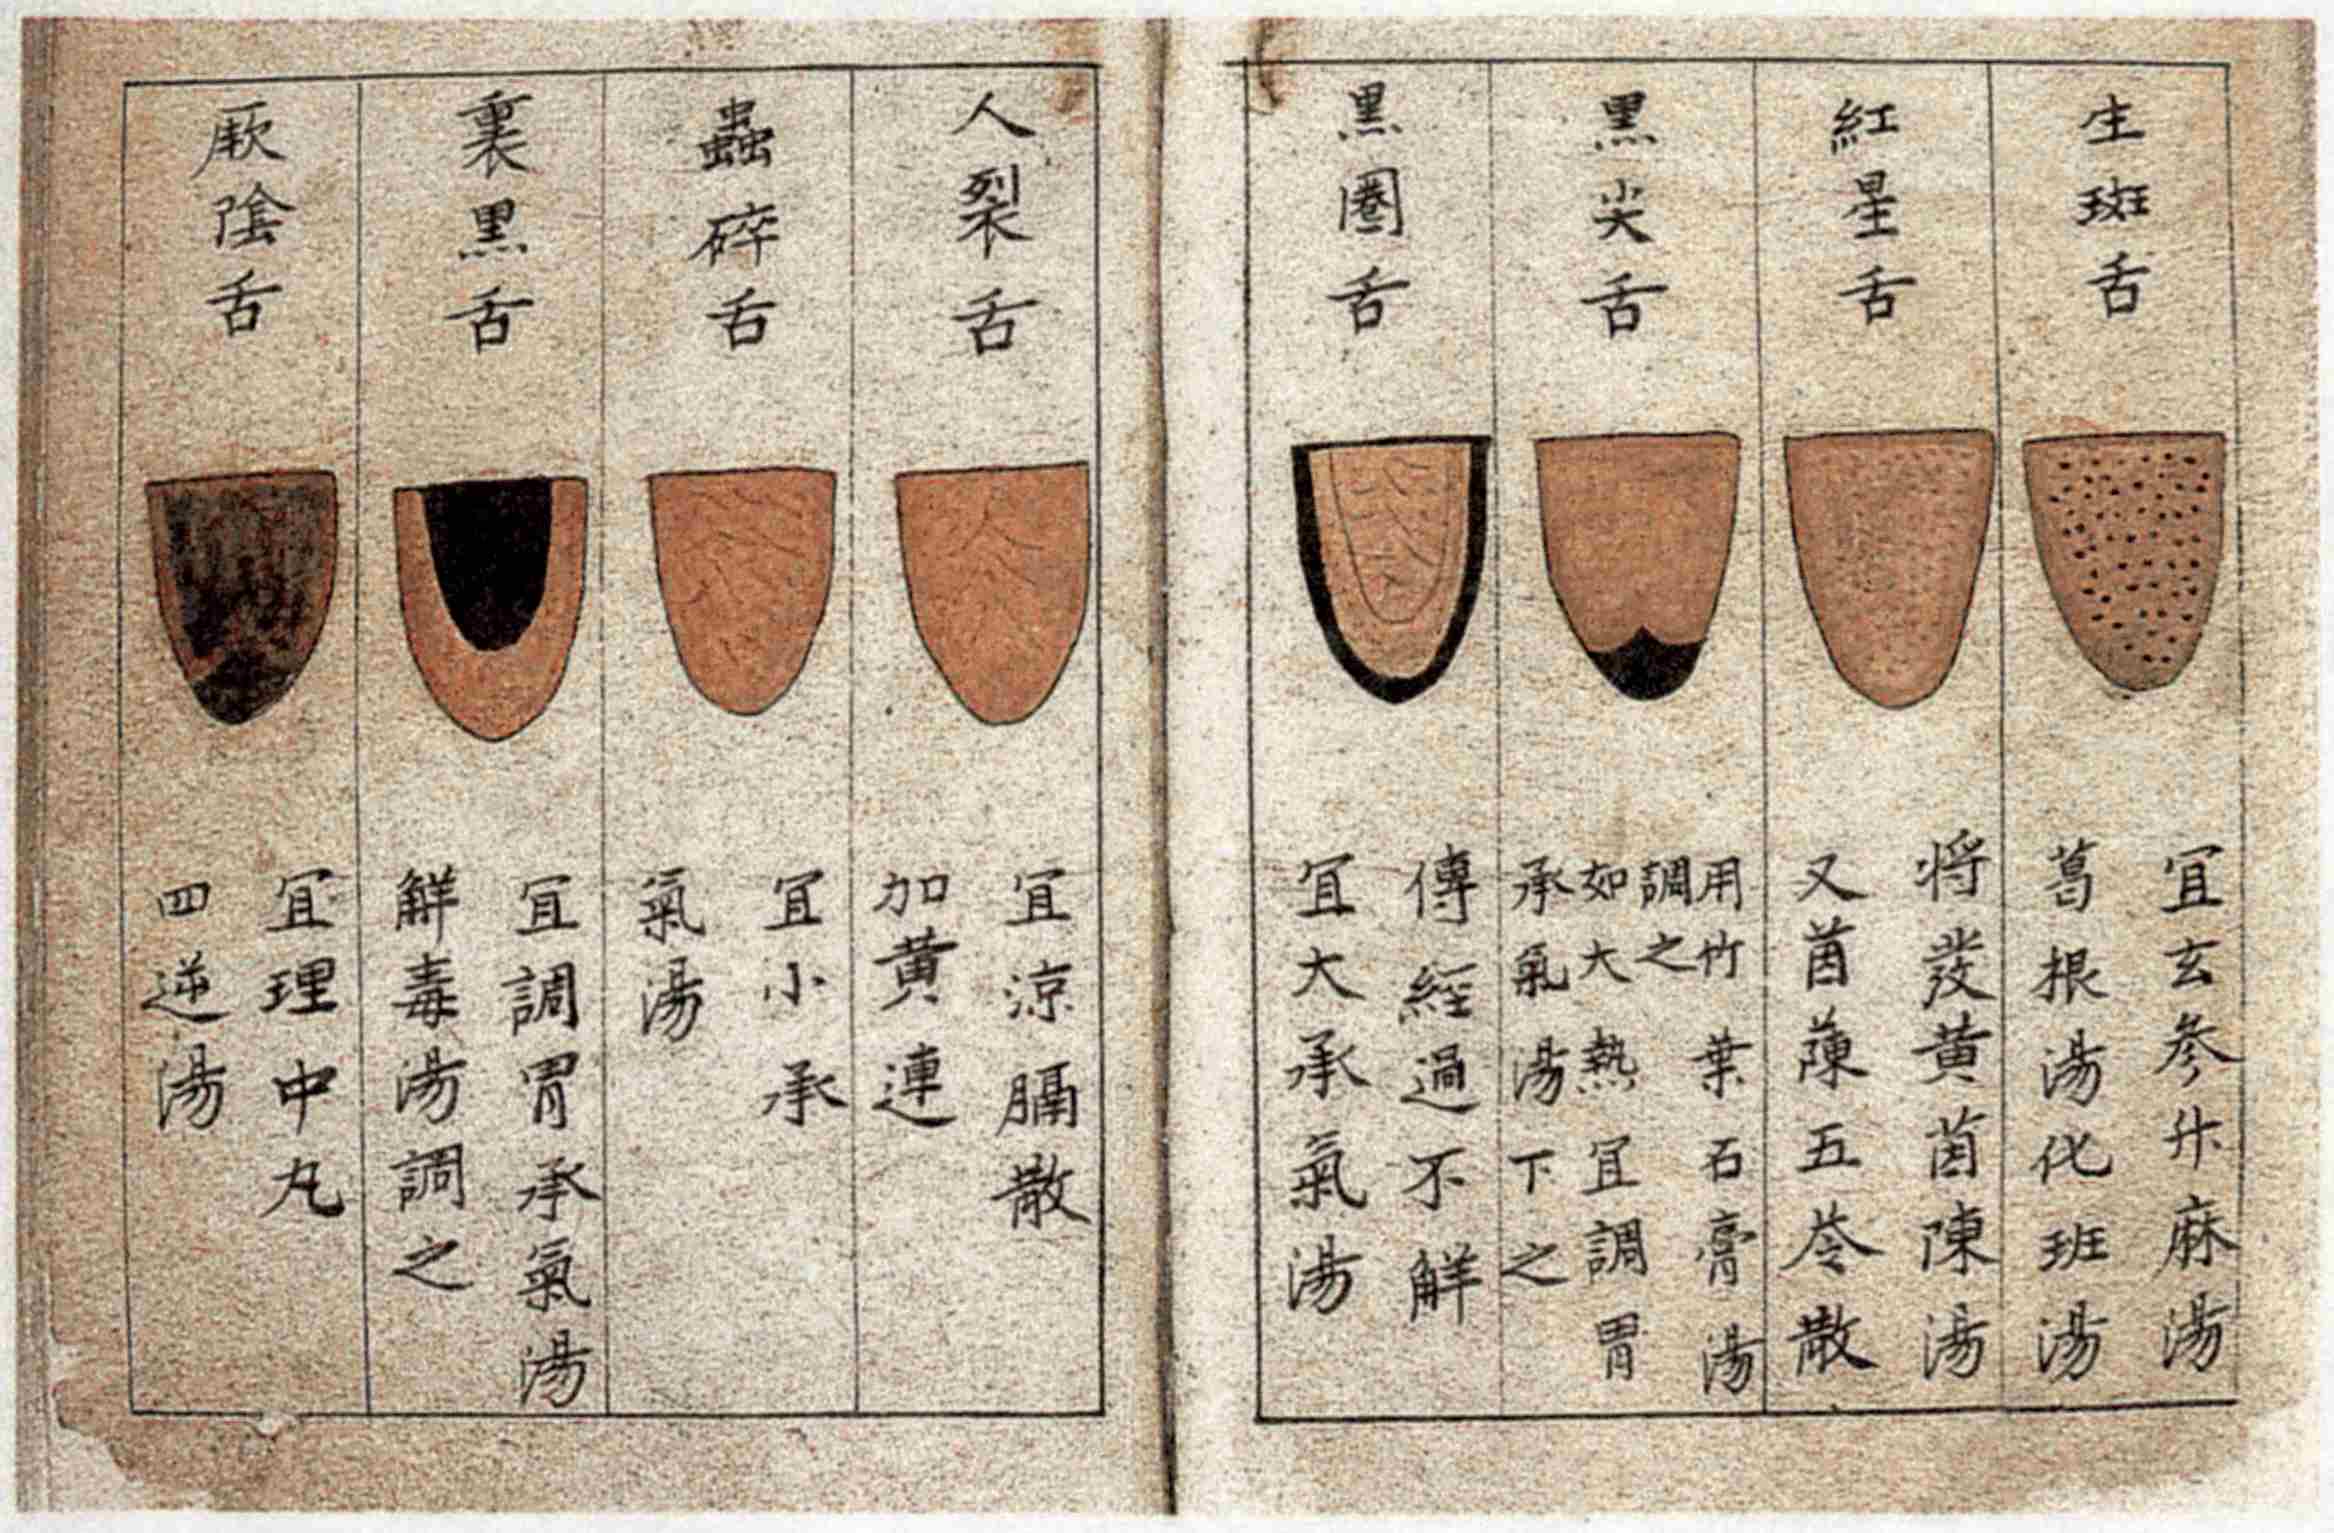 生斑舌
宜玄參升麻湯
葛根湯化班湯
紅星舌
将發黄茵陳湯
又茵蔯五苓散
黒尖舌
用竹葉石膏湯
調之
如大熱宜調胃
承氣湯下之
黒圈舌
傳經過不觧
宜大承氣湯
人裂舌
宜涼膈散
加黄連
蟲碎舌
宜小承
氣湯
裏黒舌
宜調胃承氣湯
觧毒湯調之
厥陰舌
宜理中丸
四逆湯